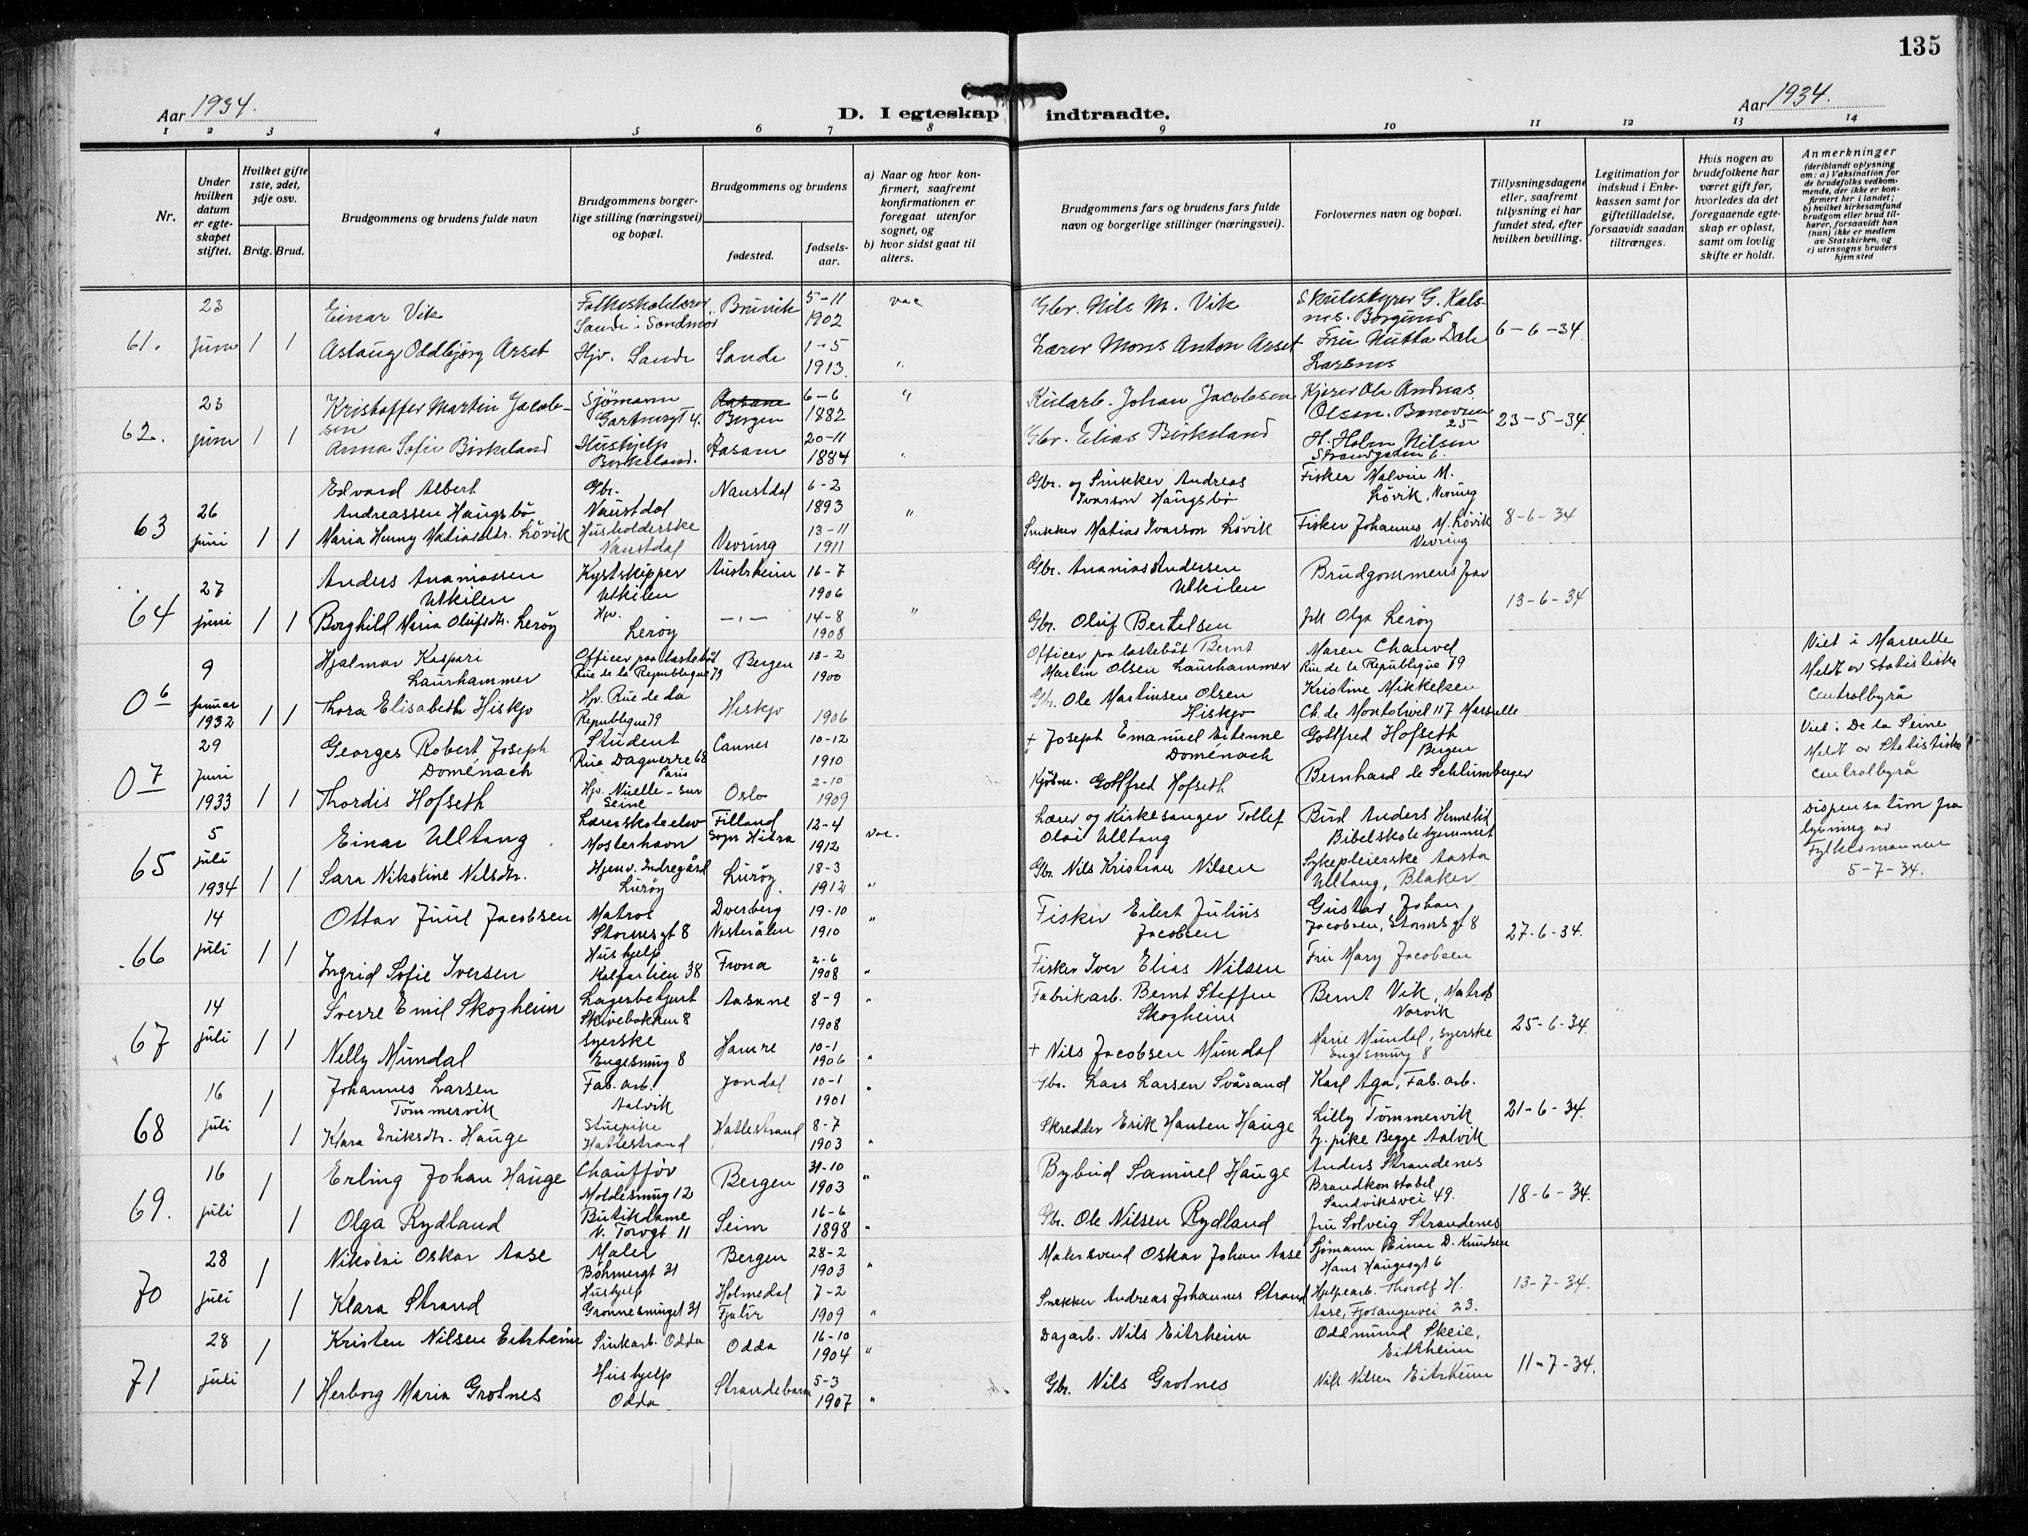 135
Aar 1934.
D. I egteskap indtraadte.
Aar 1934.
1 2 3 4 5 6 7 8 9 10 11 12 13 14
Nr.
Under hvilken datum er egteskapet stiftet.
Hvilket gifte 1ste, 2det, 3dje osv.
Brdg. Brud.
Brudgommens og brudens fulde navn
Brudgommens borgerlige stilling (næringsvei) og bopæl.
Brudgommens og brudens
fødested.
fødselsaar.
a) Naar og hvor konfirmert, saafremt konfirmationen er foregaat utenfor sognet, og
b) hvor sidst gaat til alters.
Brudgommens fars og brudens fars fulde navn og borgerlige stillinger (næringsvei).
Forlovernes navn og bopæl.
Tillysningsdagene eller, saafremt tillysning ei har fundet sted, efter hvilken bevilling.
Legitimation for indskud i Enkekassen samt for giftetilladelse, forsaavidt saadan tiltrænges.
Hvis nogen av brudefolkene har været gift før, hvorledes da det foregaaende egteskap er opløst, samt om lovlig skifte er holdt.
Anmerkninger
(deriblandt oplysning om: a) Vaksination for de brudefolks vedkommende, der ikke er konfirmert her i landet; b) hvilket kirkesamfund brudgom eller brud tilhører, forsaavidt han (hun) ikke er medlem av Statskirken, og c) utensogns bruders hjemsted
61. 23 juni 1 1
Einar Vik Folkeskolelærer Sande i Søndmør Bruvik 5-11 1902 vac Gbr. Nils M. Vik Skulestyrer G. Kalsnes. Borgund
Aslaug Oddbjørg Arset Hjv. Sande Sande 1-5 1913. " Lærer Mons Anton Arset Fru Hutta Dale Larsnes 6-6-34
62. 23 juni 1 1
Kristoffer Martin Jacobsen Sjømann Gartnergt 4. Aasane Bergen 6-6 1882 " Johan Jacobsen Kjører Ole Andreas Olsen. 25 23-5-34
Anna Sofie Birkeland Hushjelp Birkeland. Aasane 20-11 1884 " Gbr. Elias Birkeland H. Holm Nilsen Strandgaden 6.
63 26 juni 1 1
Edvard Albert Andreassen Haugsbø Gbr. Naustdal Naustdal 6-2 1893 " Gbr. og Snikker Andreas Ivarson Haugsbø Fisker Malvin M. Løvik, Vevring
Maria Henny Matiasdtr. Løvik Husholderske Naustdal Vevring 13-11 1911 Snikker Matias Ivarson Løvik Fisker Johannes M. Løvik Vevring 8-6-34
64 27 juni 1 1
Anders Ananiassen Utkilen Kystskipper Utkilen Austrheim 16-7 1906 Gbr. Ananias Andersen Utkilen Brudgommens far
Borghild Maria Olufsdtr. Lerøy Hjv. Lerøy -"- 14-8 1908 " Gbr. Oluf Bertelsen Frk Olga Lerøy 13-6-34
0 6 9 januar 1932 1 1
Hjalmar Kaspari Laurhammer Officer paa lastebåt Rue de la Republique 79 Bergen 13-2 1900 Officer paa lastebåt Bernt Martin Olsen Laurhammer Maren Chauvel Rue de la Republique 79
Thora Elisabeth Hiskjo Hjv. Rue de La Republique 79 Hiskjo 1906 Gbr. Ole Martinsen Olsen Hiskjo Kristine Mikkelsen Ch. de Montolivet 117 Marseille
Viet i Marseille Meldt av Statistiske Centralbyrå
0 7 29 juni 1933 1 1
Georges Robert Joseph Doménach Student Rue Daguerre 68 Paris Cannes 10-12 1910 + Joseph Emanuel Etienne Doménach Gottfred Hofseth Bergen
Thordis Hofseth Hjv. Nuelle-sur Seine Oslo 2-10 1909 Kjøbm. Gottfred Hofseth Bernhard de Schlumberger
Viet i De la Seine Meldt av Statistiske Centralbyrå
65 5 juli 1934 1 1
Einar Ulltang Lærerskoleelev Mosterhavn Filland Sogn Hitra 12-4 1912 vac. Lærer og Kirkesanger Tollef Olai Ulltang Bud Anders Hennelid Bibelskolehjemmet
Sara Nikoline Nilsdtr. Hjemv. Indregård Lurøy Lurøy 18-3 1912 " Gbr. Nils Kristian Nilsen Sykepleierske Aasta Ulltang, Blaker
Dispensation fra lysning av Fylkesmannen 5-7-34.
66 14 juli 1 1
Ottar Juul Jacobsen Matros Stormsgt 8 Dverberg Vesterålen 19-10 1910 " Fisker Eilert Julius Jacobsen Gustav Johan Jacobsen, Stormsgt 8
Ingrid Sofie Iversen Hushjelp Kalfarlien 38 Frona 2-6 1908 " Fisker Iver Elias Nilsen Fru Mary Jacobsen 27-6-34.
67 14 juli 1 1
Sverre Emil Skogheim Lagerbetjent Skivebakken 8 Aasane 8-9 1908 " Fabrikarb. Bernt Steffen Skogheim Bernt Vik, Matros Norvik
Nelly Mundal Syerske Engesmug 8 Hamre 10-1 1906 " + Nils Jacobsen Mundal Marie Mundal, syerske Engesmug 8 25-6-34.
68 16 juli 1 1
Johannes Larsen Tømmervik Fab. arb. Aalvik Jondal 10-1 1901 " Gbr. Lars Larsen Svåsand Karl Aga, Fab. arb.
Klara Eriksdtr. Hauge Stuepike Hatlestrand Hatlestrand 8-7 1903 " Skredder Erik Hansen Hauge Lilly Tømmervik pike Begge Aalvik 21-6-34.
69. 16 juli 1 1
Erling Johan Hauge Chauffør Moldesmug 12 Bergen 31-10 1903 " Bybud Samuel Hauge Anders Strandenes Brandkonstabel Sandviksvei 49.
Olga Rydland Butikdame N. Torvgt 11 Seim 16-6 1898 " Gbr. Ole Nilsen Rydland Fru Solveig Strandenes 18-6-34.
70 28 juli 1 1
Nikolai Oskar Aase Maler Bøhmergt 31 Bergen 28-2 1903 " Malersvend Oskar Johan Aase Sjømann Einar D. Knudsen Hans Haugesgt 6
Klara Strand Hushjelp Grønnesmuget 31 Holmedal Fjaler 7-2 1909 " Snekker Andreas Johannes Strand Hjelpearb. Thorolf H. Aase, Fjøsangervei 23. 13-7-34.
71 28 juli 1 1
Kristen Nilsen Eitrheim Sinkarb. Odda Odda 16-10 1904 " Dagarb. Nils Eitrheim Oddmund Skeie, Eitrheim
Herborg Maria Grotnes Hushjelp Odda Strandebarm 5-3 1907 " Gbr. Nils Grotnes Nils Nilsen Eitrheim 11-7-34.